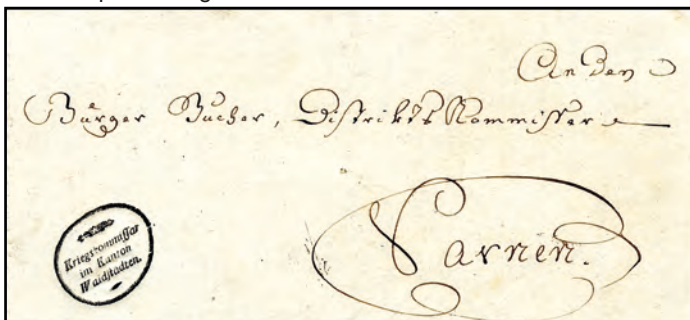 An den
Bürger Bucher, Distrikts Kommissar
Sarnen.
Kriegscommissar
im Kanton
Waldstadten.